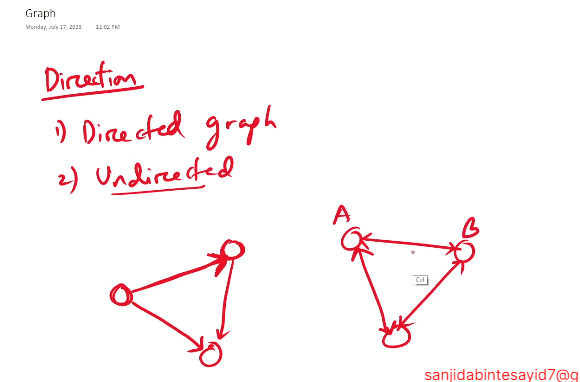 Graph
Monday, July 17, 2023 12:02 PM
Direction
1) Directed graph
2) Undirected
A
B
Col
sanjidabintesayid7@g